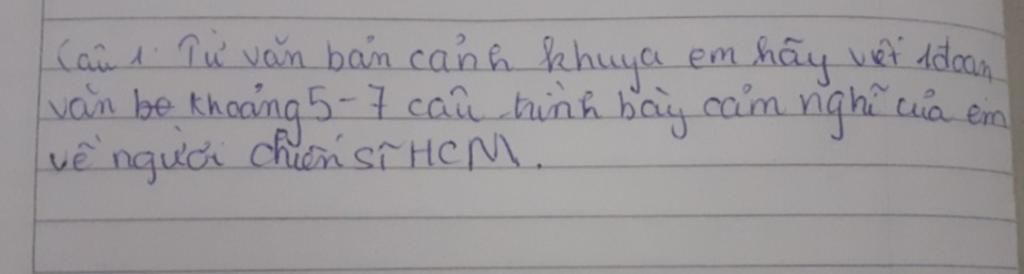 Câu 1: Từ văn bản cảnh khuya em hãy viết 1 đoạn
văn be khoảng 5-7 câu trình bày cảm nghĩ của em
về người chiến sĩ HCM.